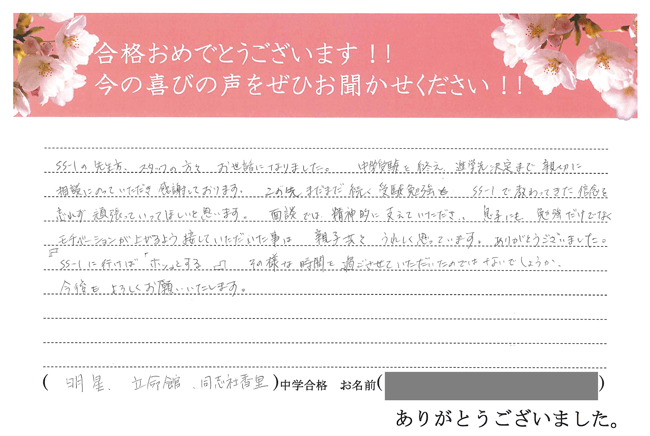 合格おめでとうございます！！
今の喜びの声をぜひお聞かせください！！
SS-1の先生方、スタッフの方々 お世話になりました。 中学受験を終え、進学先決定まで親切に
相談にのっていただき感謝しております。 この先まだまだ続く受験勉強も SS-1で教わってきた信念を
忘れず頑張っていってほしいと思います。 面談では精神的に支えていただき、息子にも勉強だけでなく
モチベーションが上がるよう接していただいた事は 親子共々うれしく思っています。ありがとうございました。
『SS-1に行けば「ホッとする」』 その様な時間を過ごさせていただいたのではないでしょうか。
今後もよろしくお願いいたします。
( 明星、立命館、同志社香里 )中学合格 お名前( )
ありがとうございました。